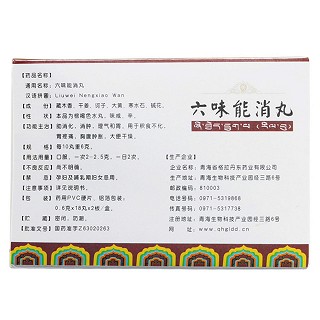 [药品名称]
通用名称:六味能消丸
汉语拼音:Liuwei Nengxiao Wan
[成 份]藏木香、干姜、诃子、大黄、寒水石、碱花。
[性 状]本品为棕褐色水丸;味咸、辛。
[功能主治]助消化,消肿,理气和胃。用于积食不化,
胃疼痛,胸腹肿胀,大便干燥。
[规 格]每10丸重6克
[用法用量]口服,一次2-2.5克,一日2次。
[不良反应]尚不明确。
[禁 忌]孕妇及哺乳期妇女忌用。
[注意事项]详见说明书。
[包 装]药用PVC硬片、铝箔包装;
0.6克×18丸×2板/盒。
[贮 藏]密闭,防潮。
[批准文号]国药准字Z63020263
六味能消丸
[生产企业]
企业名称:青海省格拉丹东药业有限公司
生产地址:青海生物科技产业园经三路6号
邮政编码:810003
电话号码:0971-5319868
传真号码:0971-5317738
注册地址:青海生物科技产业园经三路6号
网 址:www.qhgldd.cn